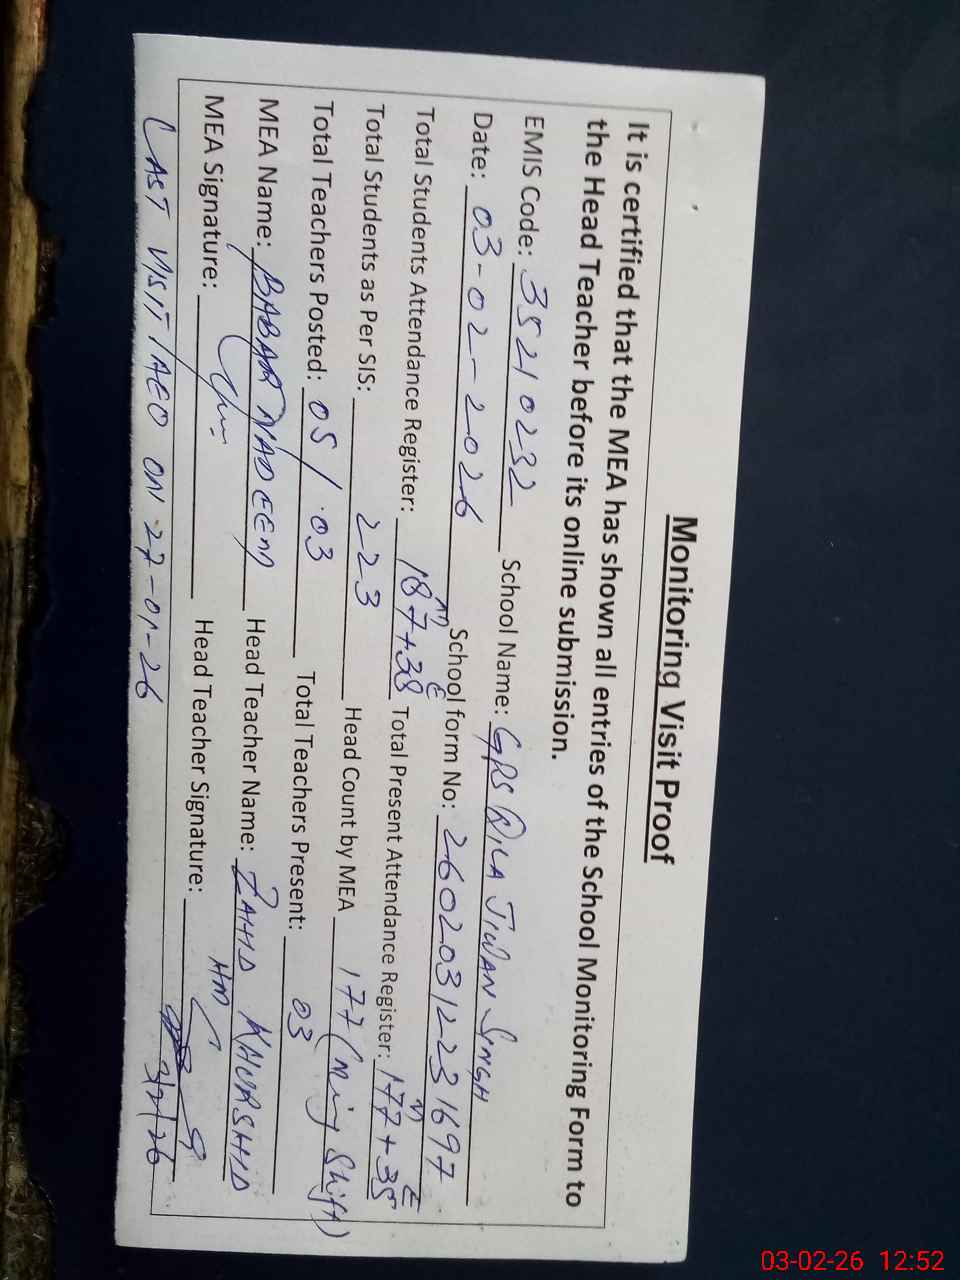 Monitoring Visit Proof
It is certified that the MEA has shown all entries of the School Monitoring Form to
the Head Teacher before its online submission.
EMIS Code: 35210232 School Name: GPS QILA JIWAN SINGH
Date: 03-02-2026 School form No: 26020312231697
Total Students Attendance Register: 187+38 M E Total Present Attendance Register: 177+35 M E
Total Students as Per SIS: 223 Head Count by MEA 177 (Mning Shift)
Total Teachers Posted: 05/03 Total Teachers Present: 03
MEA Name: BABAR NADEEM Head Teacher Name: ZAHID KHURSHID
MEA Signature: Head Teacher Signature: HM 3/2/26
LAST VISIT/AEO ON 27-01-26
03-02-26 12:52